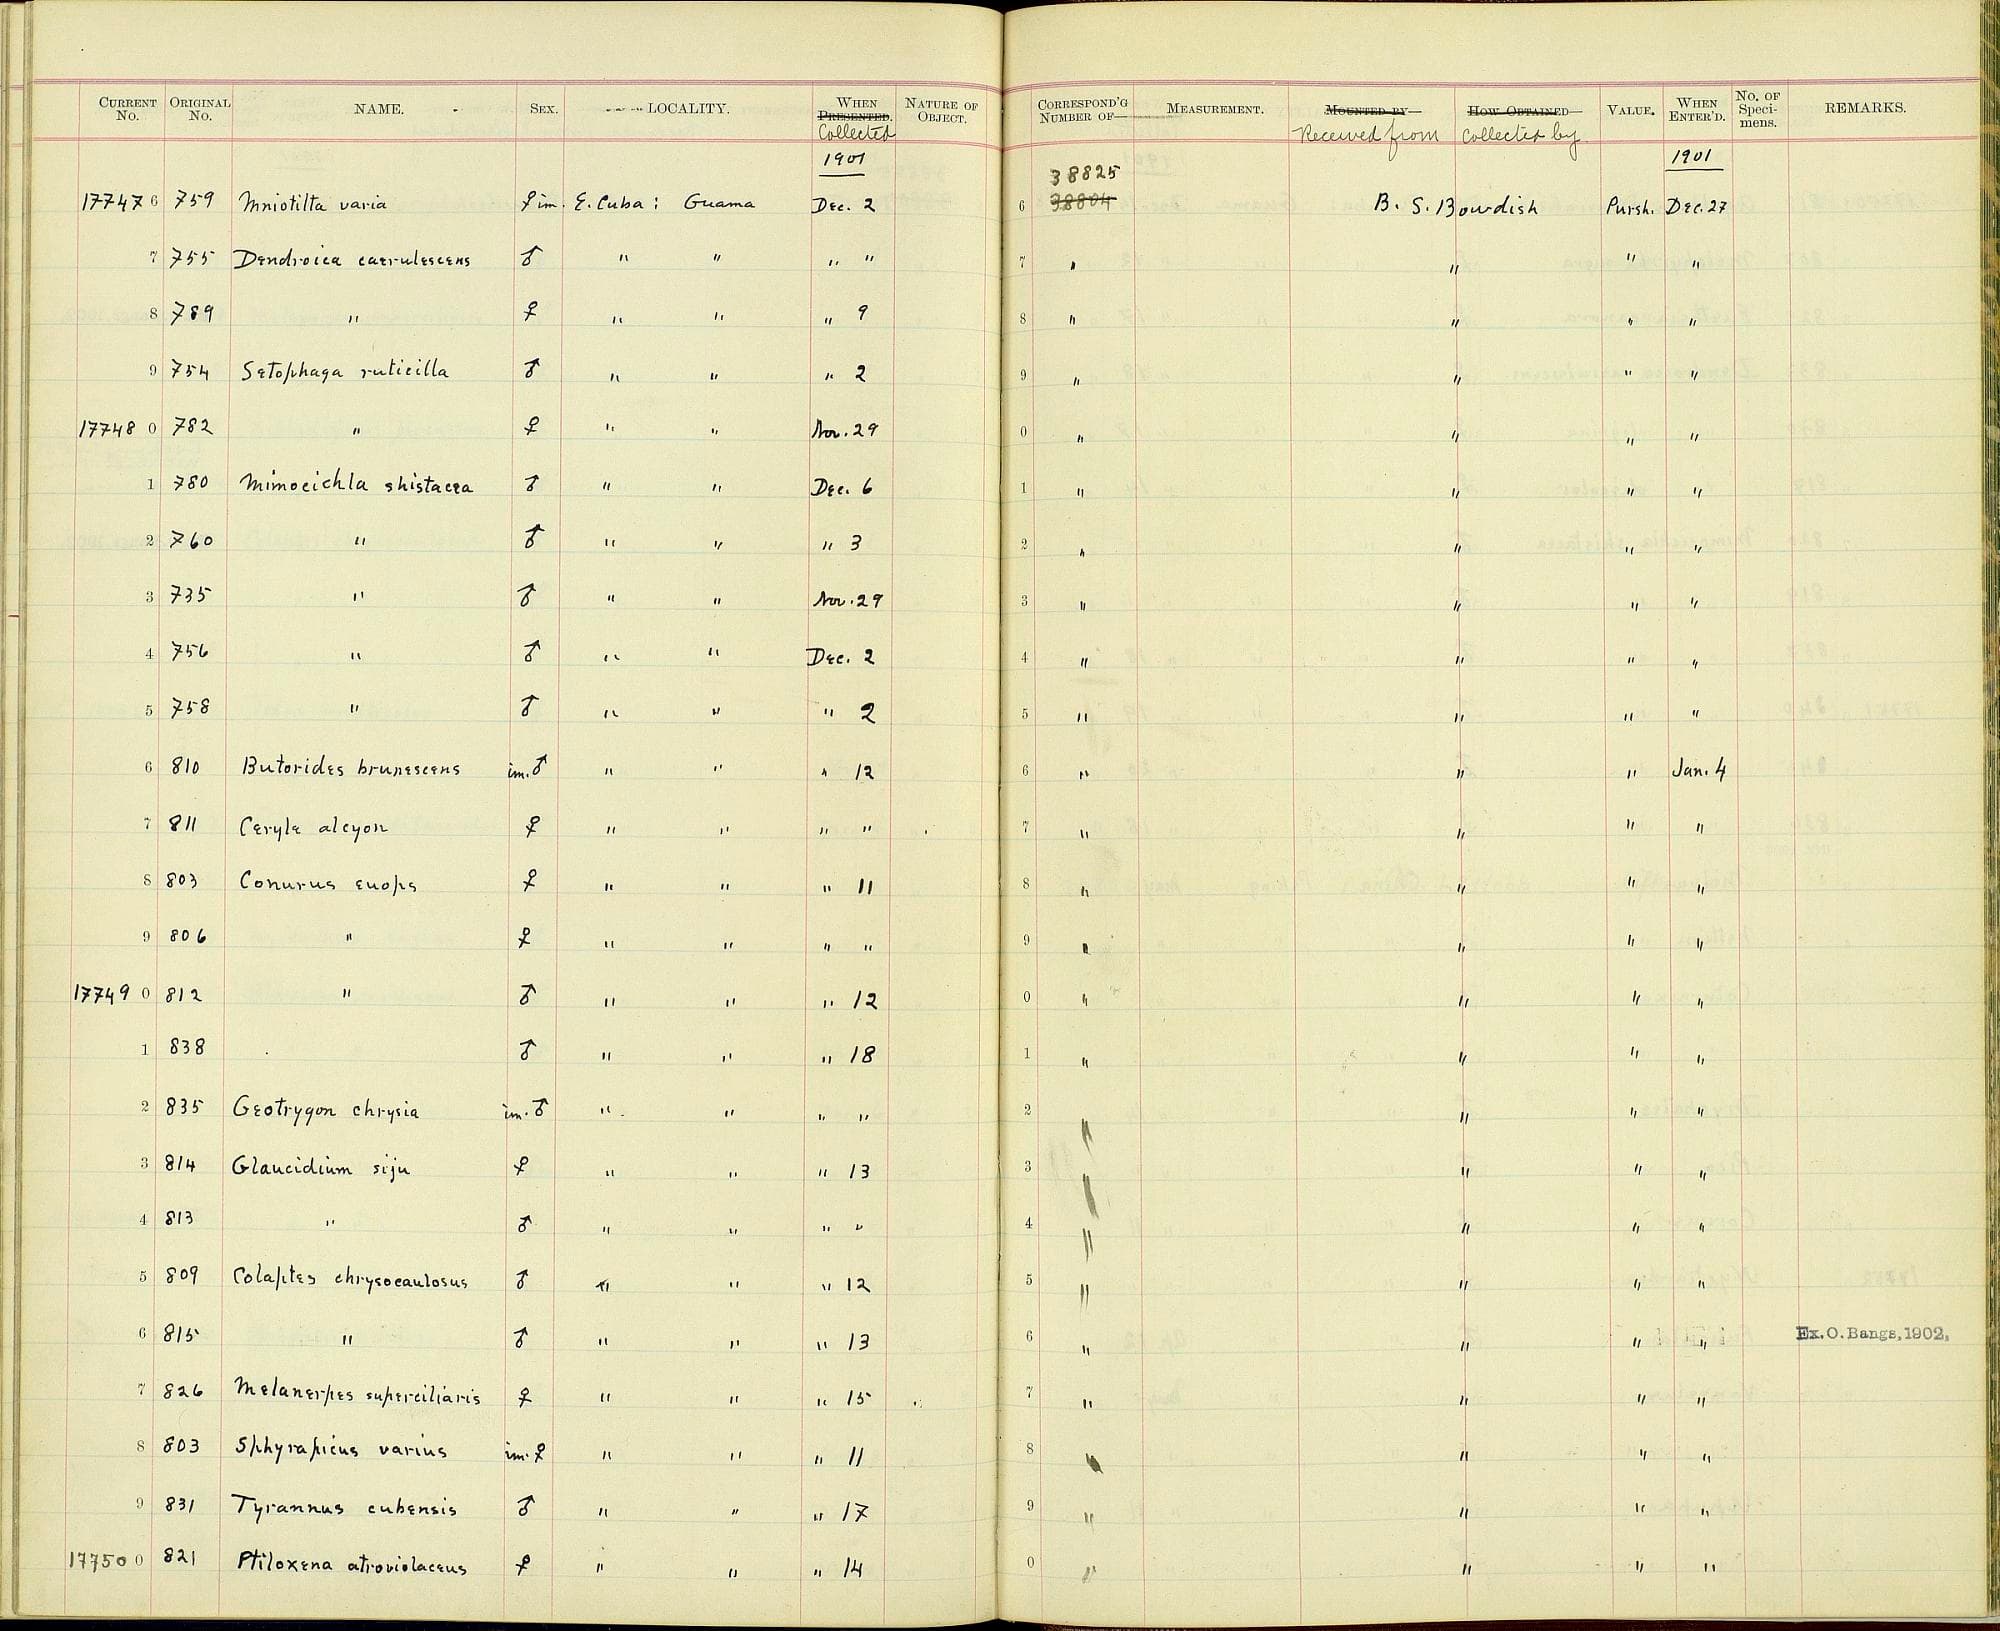 CURRENT No. ORIGINAL No. NAME. SEX. LOCALITY. WHEN PRESENTED. Collected NATURE OF OBJECT. CORRESPOND'G NUMBER OF MEASUREMENT. MOUNTED BY Received from HOW OBTAINED Collected by VALUE. WHEN ENTER'D. No. OF Specimens. REMARKS.
1901 38825 1901
17747 6 759 Mniotilta varia ♀ im. E. Cuba : Guama Dec. 2 6 38804 B. S. Bowdish Pursh. Dec. 27
7 755 Dendroica caerulescens ♂ " " " " 7 " " " "
8 789 " ♀ " " " 9 8 " " " "
9 754 Setophaga ruticilla ♂ " " " 2 9 " " " "
17748 0 782 " ♀ " " Nov. 29 0 " " " "
1 780 Mimocichla shistacea ♂ " " Dec. 6 1 " " " "
2 760 " ♂ " " " 3 2 " " " "
3 735 " ♂ " " Nov. 29 3 " " " "
4 756 " ♂ " " Dec. 2 4 " " " "
5 758 " ♂ " " " 2 5 " " " "
6 810 Butorides brunescens im. ♂ " " " 12 6 " " " Jan. 4
7 811 Ceryle alcyon ♀ " " " " 7 " " " "
8 803 Conurus euops ♀ " " " 11 8 " " " "
9 806 " ♀ " " " " 9 " " " "
17749 0 812 " ♂ " " " 12 0 " " " "
1 838 ♂ " " " 18 1 " " " "
2 835 Geotrygon chrysia im. ♂ " " " " 2 " " " "
3 814 Glaucidium siju ♀ " " " 13 3 " " " "
4 813 " ♂ " " " " 4 " " " "
5 809 Colaptes chrysocaulosus ♂ " " " 12 5 " " " "
6 815 " ♂ " " " 13 6 " " " " Ex. O. Bangs, 1902.
7 826 Melanerpes superciliaris ♀ " " " 15 7 " " " "
8 803 Sphyrapicus varius im. ♀ " " " 11 8 " " " "
9 831 Tyrannus cubensis ♂ " " " 17 9 " " " "
17750 0 821 Ptiloxena atroviolaceus ♀ " " " 14 0 " " " "